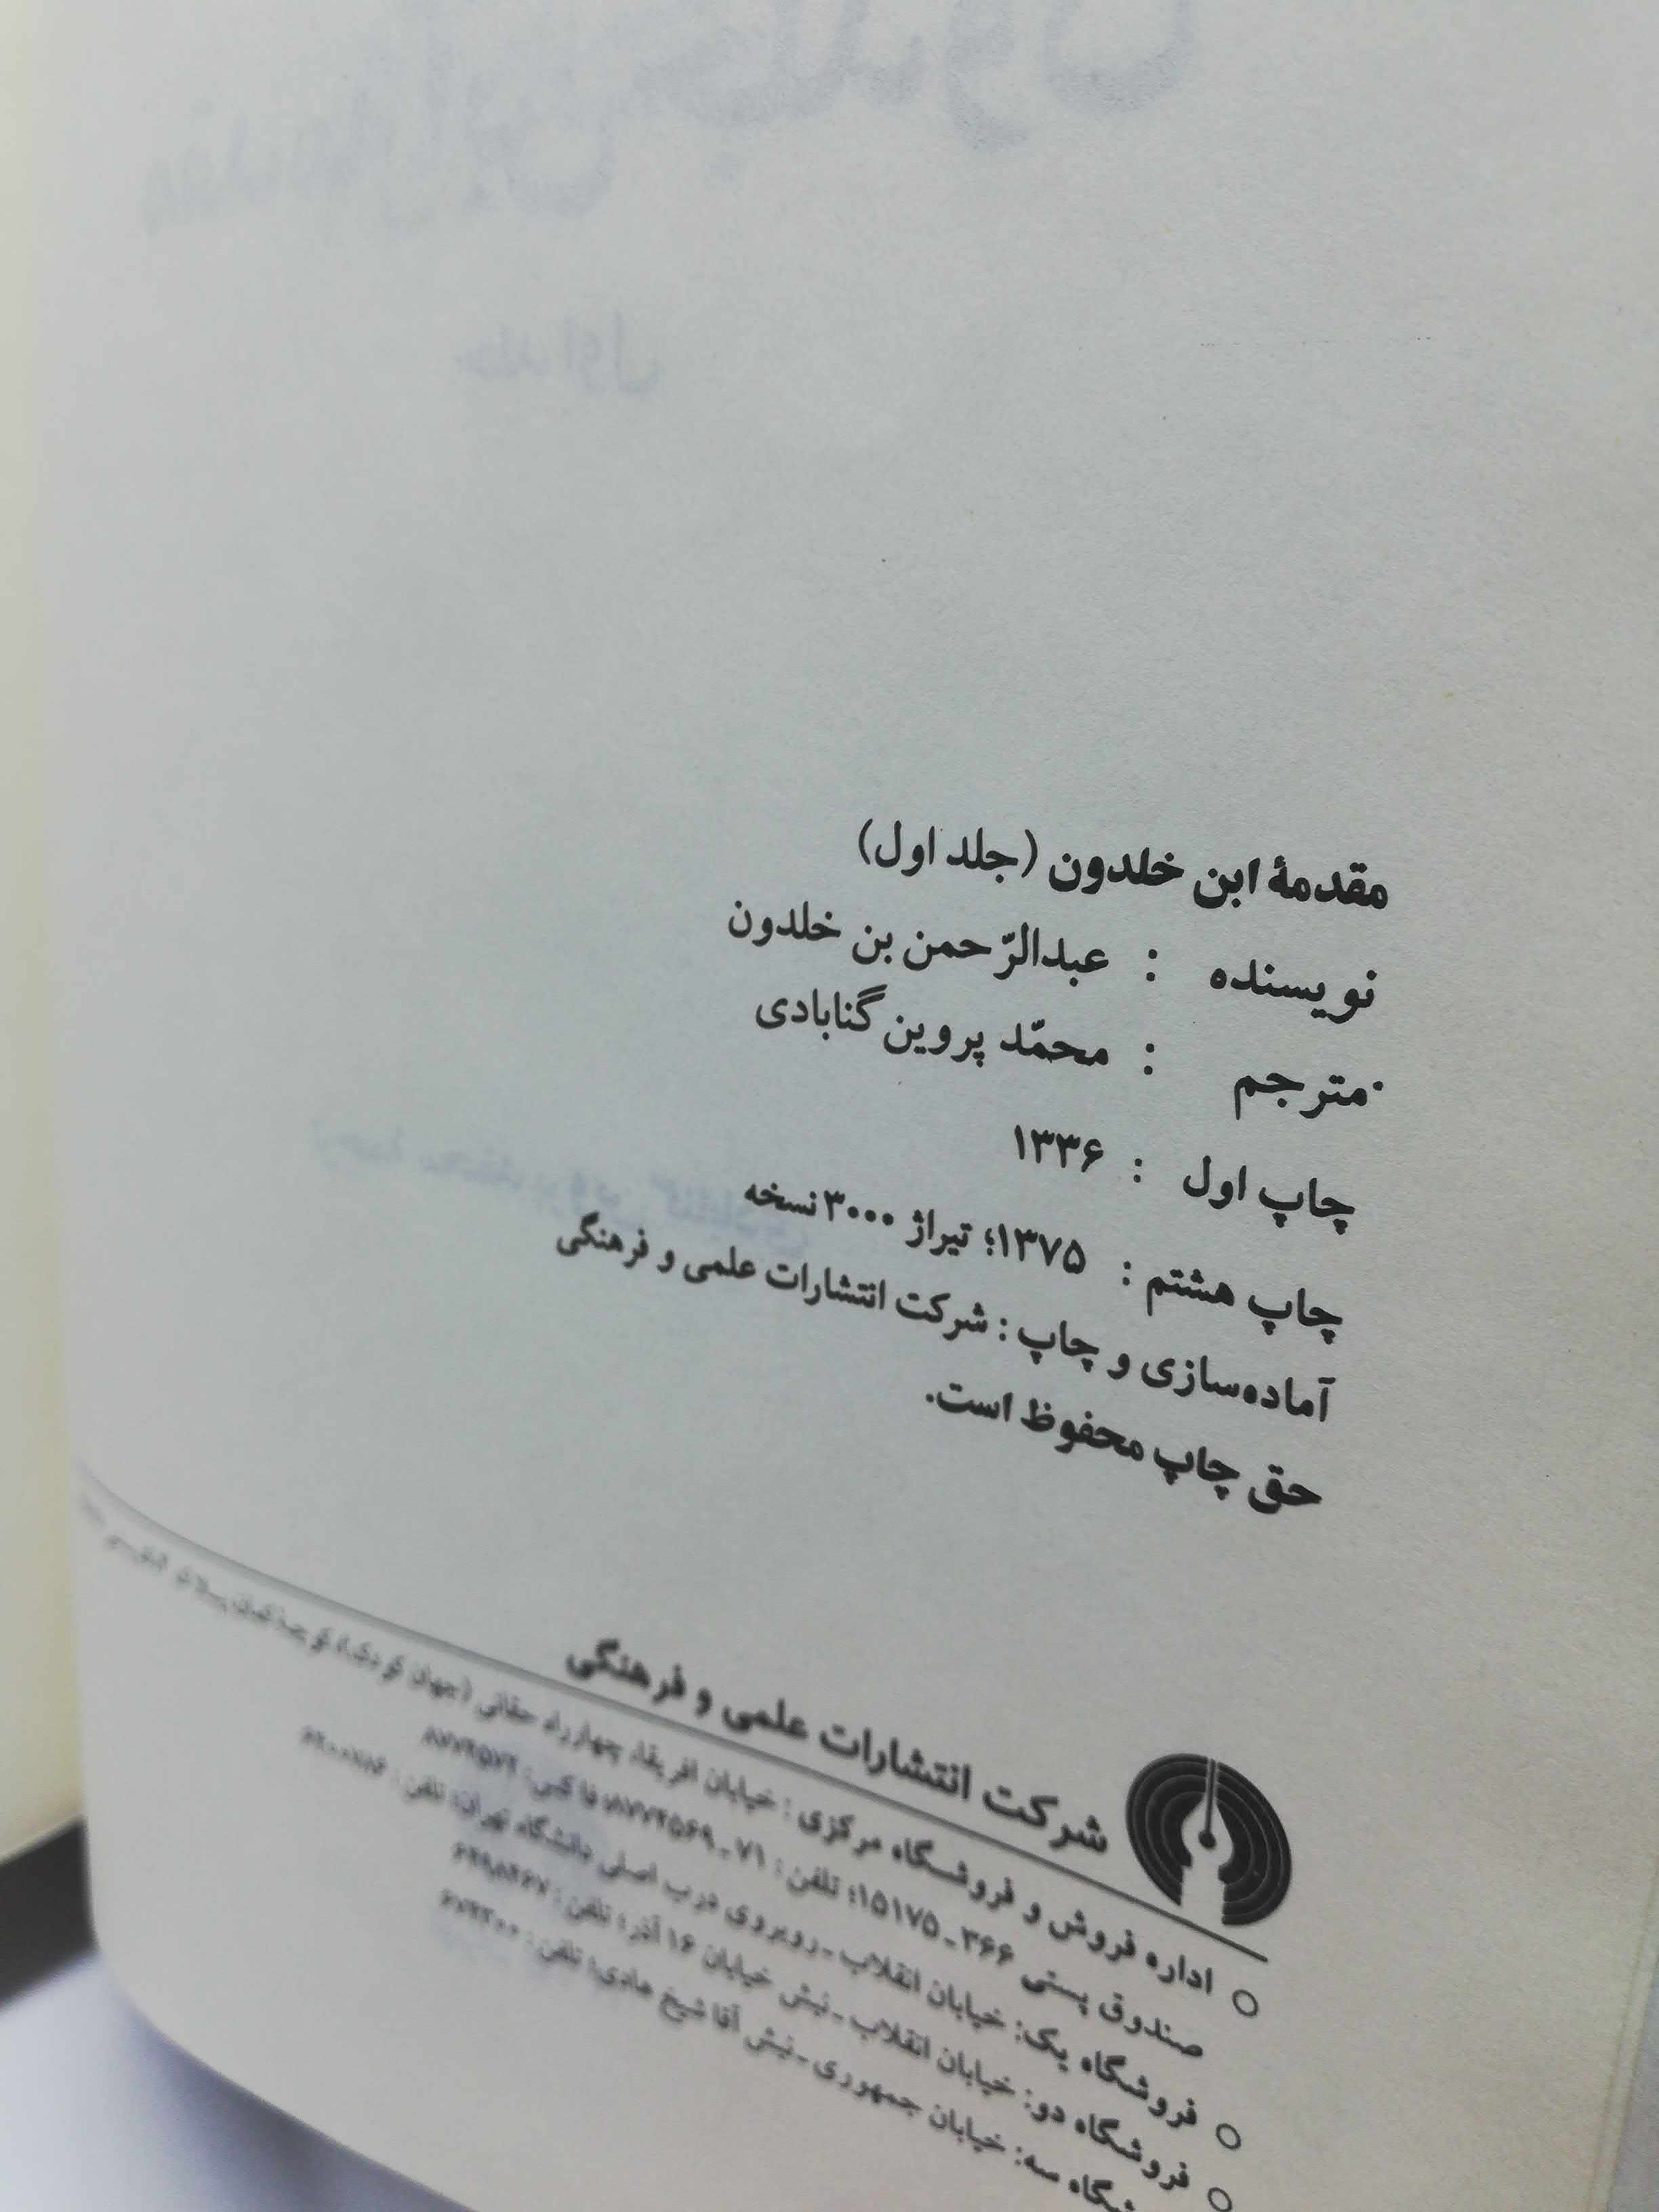 مقدمهٔ ابن خلدون (جلد اول)
نویسنده : عبدالرّحمن بن خلدون
مترجم : محمّد پروین گنابادی
چاپ اول : ۱۳۳۶
چاپ هشتم : ۱۳۷۵؛ تیراژ ۳۰۰۰ نسخه
آماده‌سازی و چاپ : شرکت انتشارات علمی و فرهنگی
حق چاپ محفوظ است.
شرکت انتشارات علمی و فرهنگی
○ اداره فروش و فروشگاه مرکزی : خیابان افریقا، چهارراه حقانی (جهان کودک)، کوچهٔ کمان، پلاک
صندوق پستی ۳۶۶ـ۱۵۱۷۵؛ تلفن : ۷۱ـ۸۷۷۴۵۶۹؛ فاکس: ۸۷۷۴۵۷۲
○ فروشگاه یک: خیابان انقلاب ـ روبروی درب اصلی دانشگاه تهران؛ تلفن : ۶۴۰۰۷۸۶
○ فروشگاه دو: خیابان انقلاب ـ نبش خیابان ۱۶ آذر؛ تلفن : ۶۴۹۸۴۶۷
خیابان جمهوری ـ نبش آقا شیخ هادی؛ تلفن : ۶۷۴۳۰۰